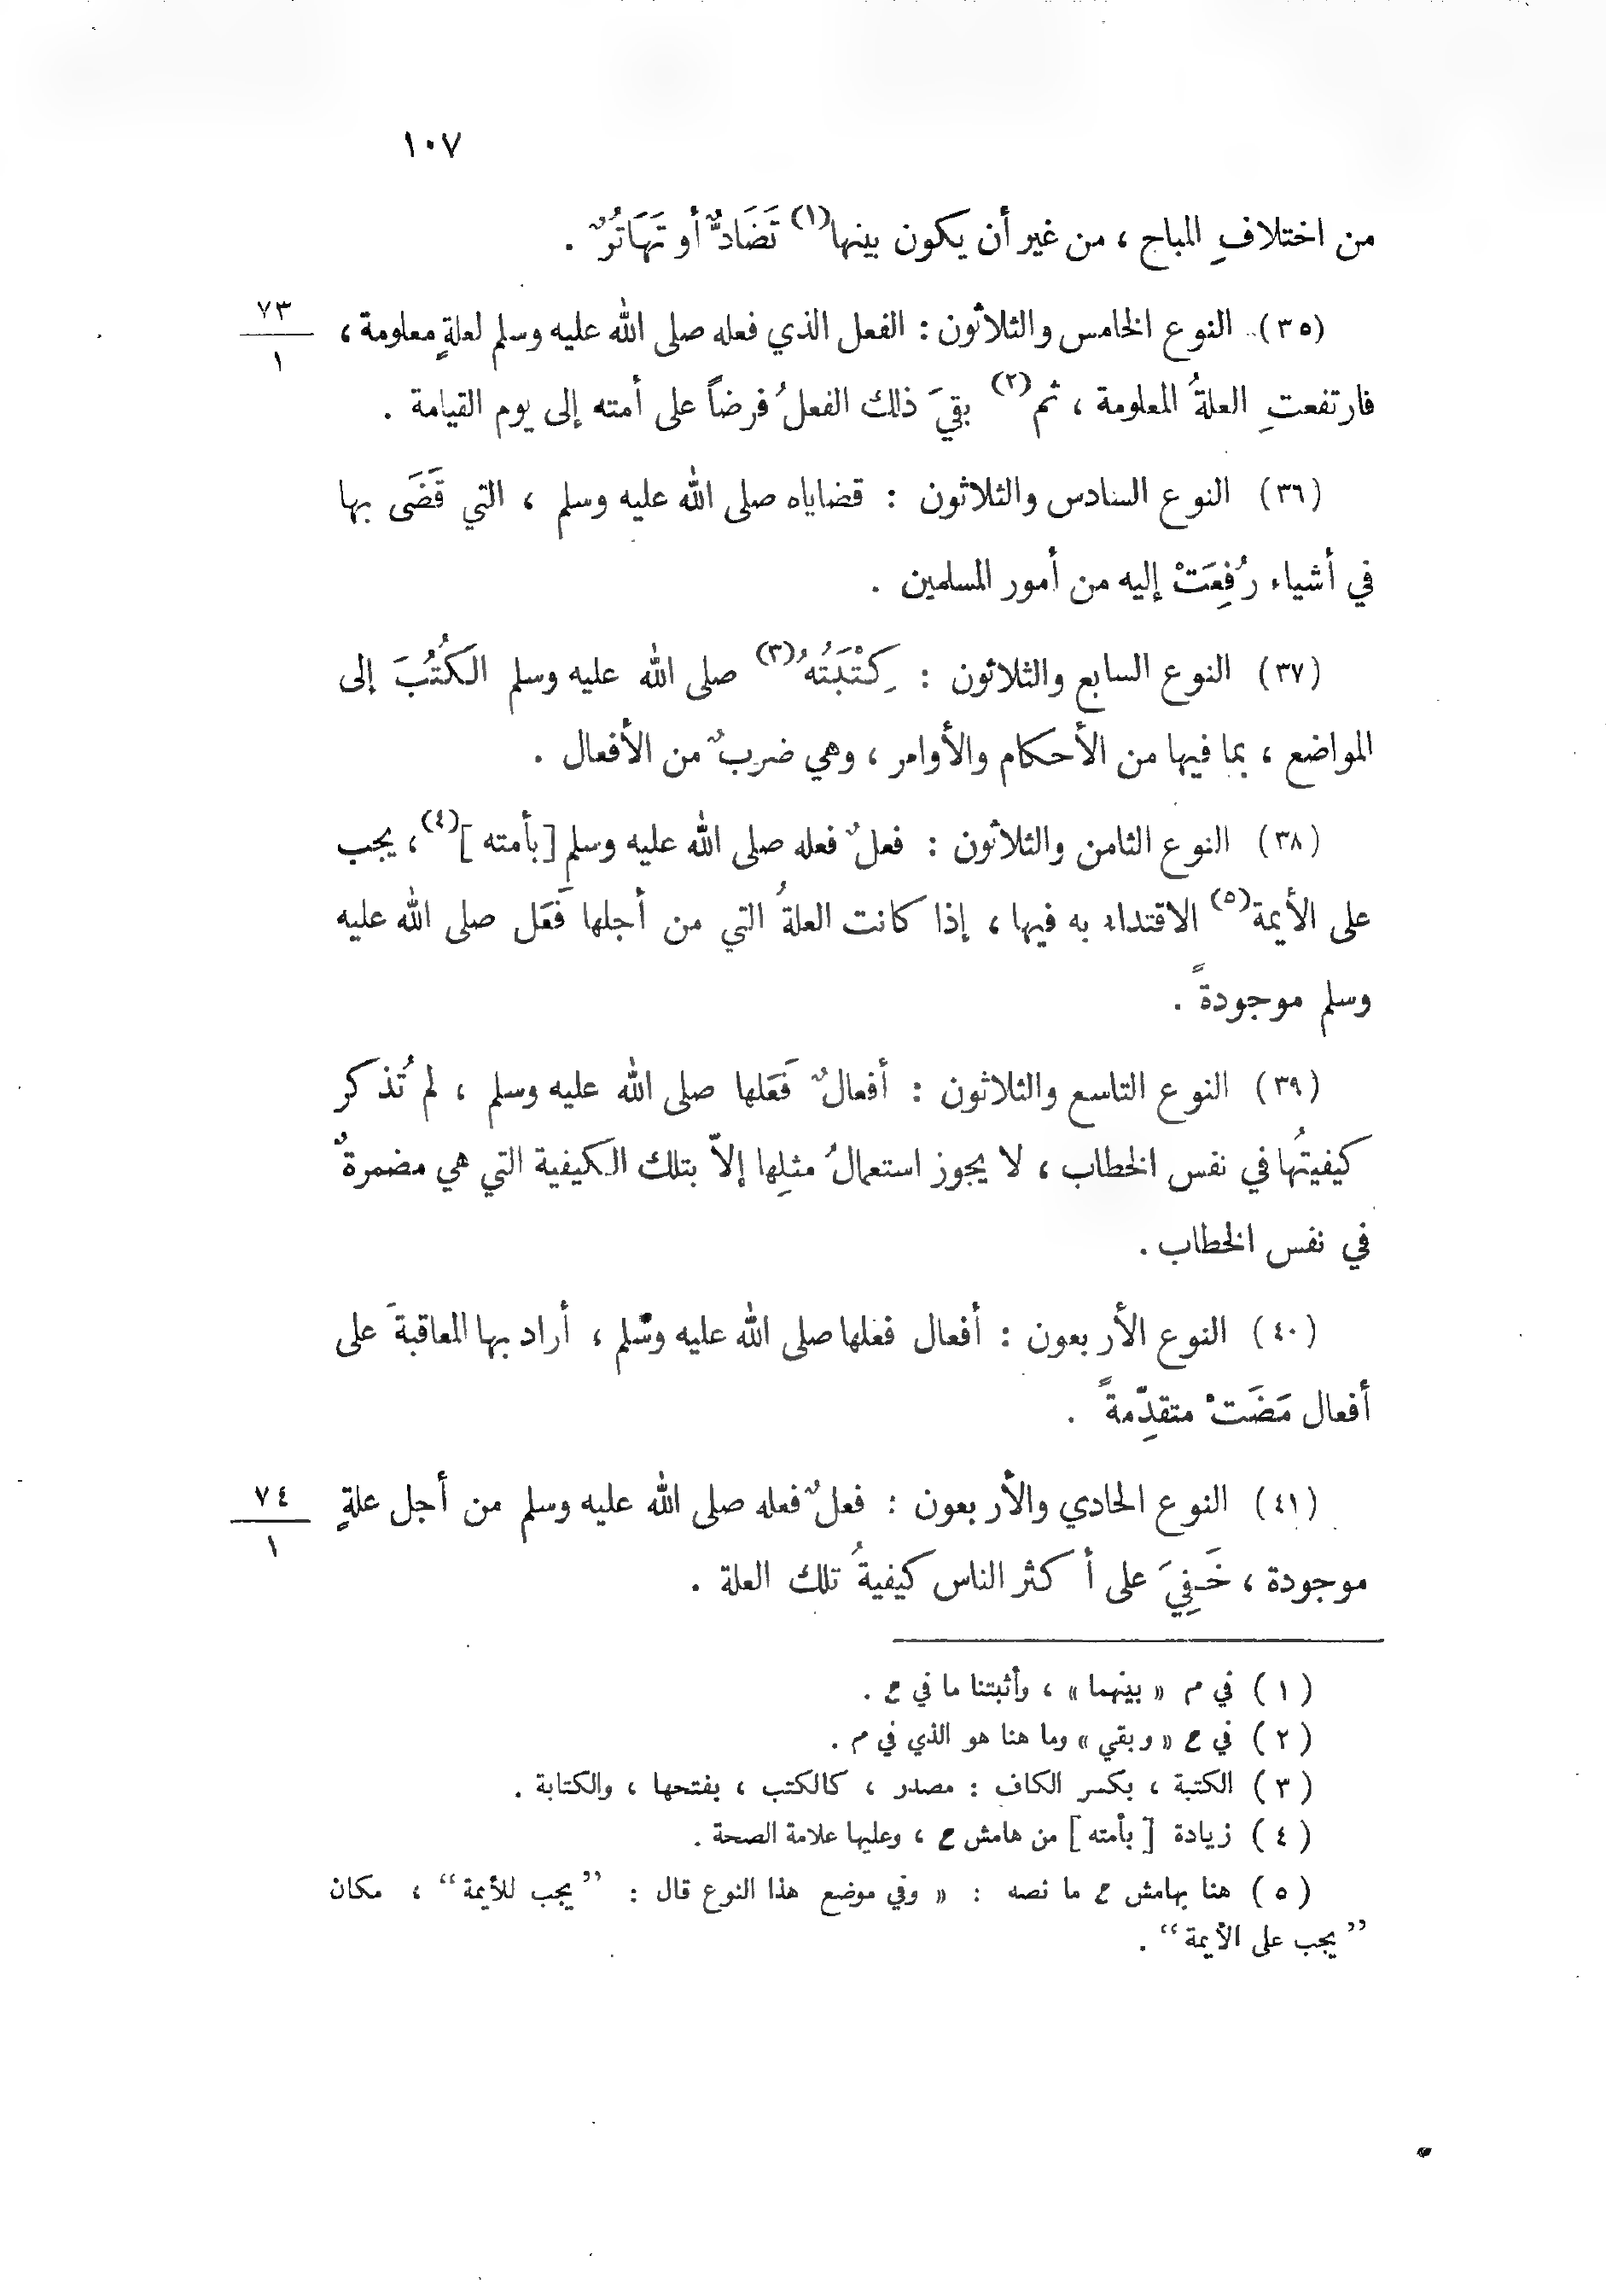 ١٠٧
من اختلافِ المباح ، من غير أن يكون بينها(١) تَضَادٌّ أو تَهَاتُرٌ .
(٣٥) النوع الخامس والثلاثون : الفعل الذي فعله صلى الله عليه وسلم لعلةٍ معلومة ،
٧٣
١
فارتفعتِ العلةُ المعلومة ، ثم(٢) بقيَ ذلك الفعلُ فرضاً على أمته إلى يوم القيامة .
(٣٦) النوع السادس والثلاثون : قضاياه صلى الله عليه وسلم ، التي قَضَى بها
في أشياء رُفِعَتْ إليه من أمور المسلمين .
(٣٧) النوع السابع والثلاثون : كِتْبَتُهُ(٣) صلى الله عليه وسلم الكُتُبَ إلى
المواضع ، بما فيها من الأحكام والأوامر ، وهي ضربٌ من الأفعال .
(٣٨) النوع الثامن والثلاثون : فعلٌ فعله صلى الله عليه وسلم [بأمته](٤) ، يجب
على الأيمة(٥) الاقتداء به فيها ، إذا كانت العلةُ التي من أجلها فَعَل صلى الله عليه
وسلم موجودةً .
(٣٩) النوع التاسع والثلاثون : أفعالٌ فَعَلها صلى الله عليه وسلم ، لم تُذكر
كيفيتُها في نفس الخطاب ، لا يجوز استعمالُ مثلِها إلاّ بتلك الكيفية التي هي مضمرةٌ
في نفس الخطاب .
(٤٠) النوع الأربعون : أفعال فعلها صلى الله عليه وسلم ، أراد بها المعاقبةَ على
أفعال مَضَتْ متقدِّمةً .
(٤١) النوع الحادي والأربعون : فعلٌ فعله صلى الله عليه وسلم من أجل علةٍ
٧٤
١
موجودة ، خَفِيَ على أكثر الناس كيفيةُ تلك العلة .
(١) في م « بينهما » ، وأثبتنا ما في ع .
(٢) في ع « وبقي » وما هنا هو الذي في م .
(٣) الكتبة ، بكسر الكاف : مصدر ، كالكتب ، بفتحها ، والكتابة .
(٤) زيادة [بأمته] من هامش ع ، وعليها علامة الصحة .
(٥) هنا بهامش ع ما نصه : « وفي موضع هذا النوع قال : ”يجب للأيمة“ ، مكان
”يجب على الأيمة“ .